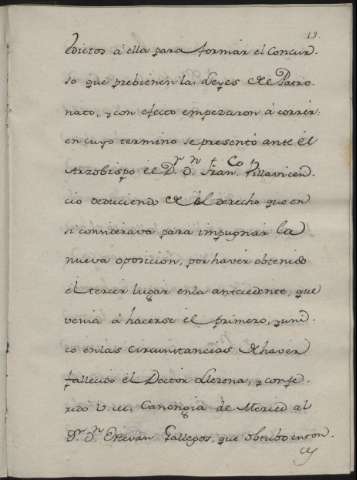 13
Edictos á ella para formar el Concur-
so que prebienen las Leyes de Patro-
nato, y con efecto empezaron á corrèr:
en cuyo termino se presentó ante el
Arzobispo el Dr. Dn. Fran.co Villavicen-
cio deduciendo el derecho que en
sí considerava para impugnar la
nueva oposicion, por haver obtenido
el tercer lugar en la antecedente, que
venia á hacerse el primero, y uni-
co en las circunstancias de haver
fallecido el Doctor Llerena, y confe-
rido V. M. Canongia de Merced al
Dr. Dn. Estevan Gallegos, que obtubo en son